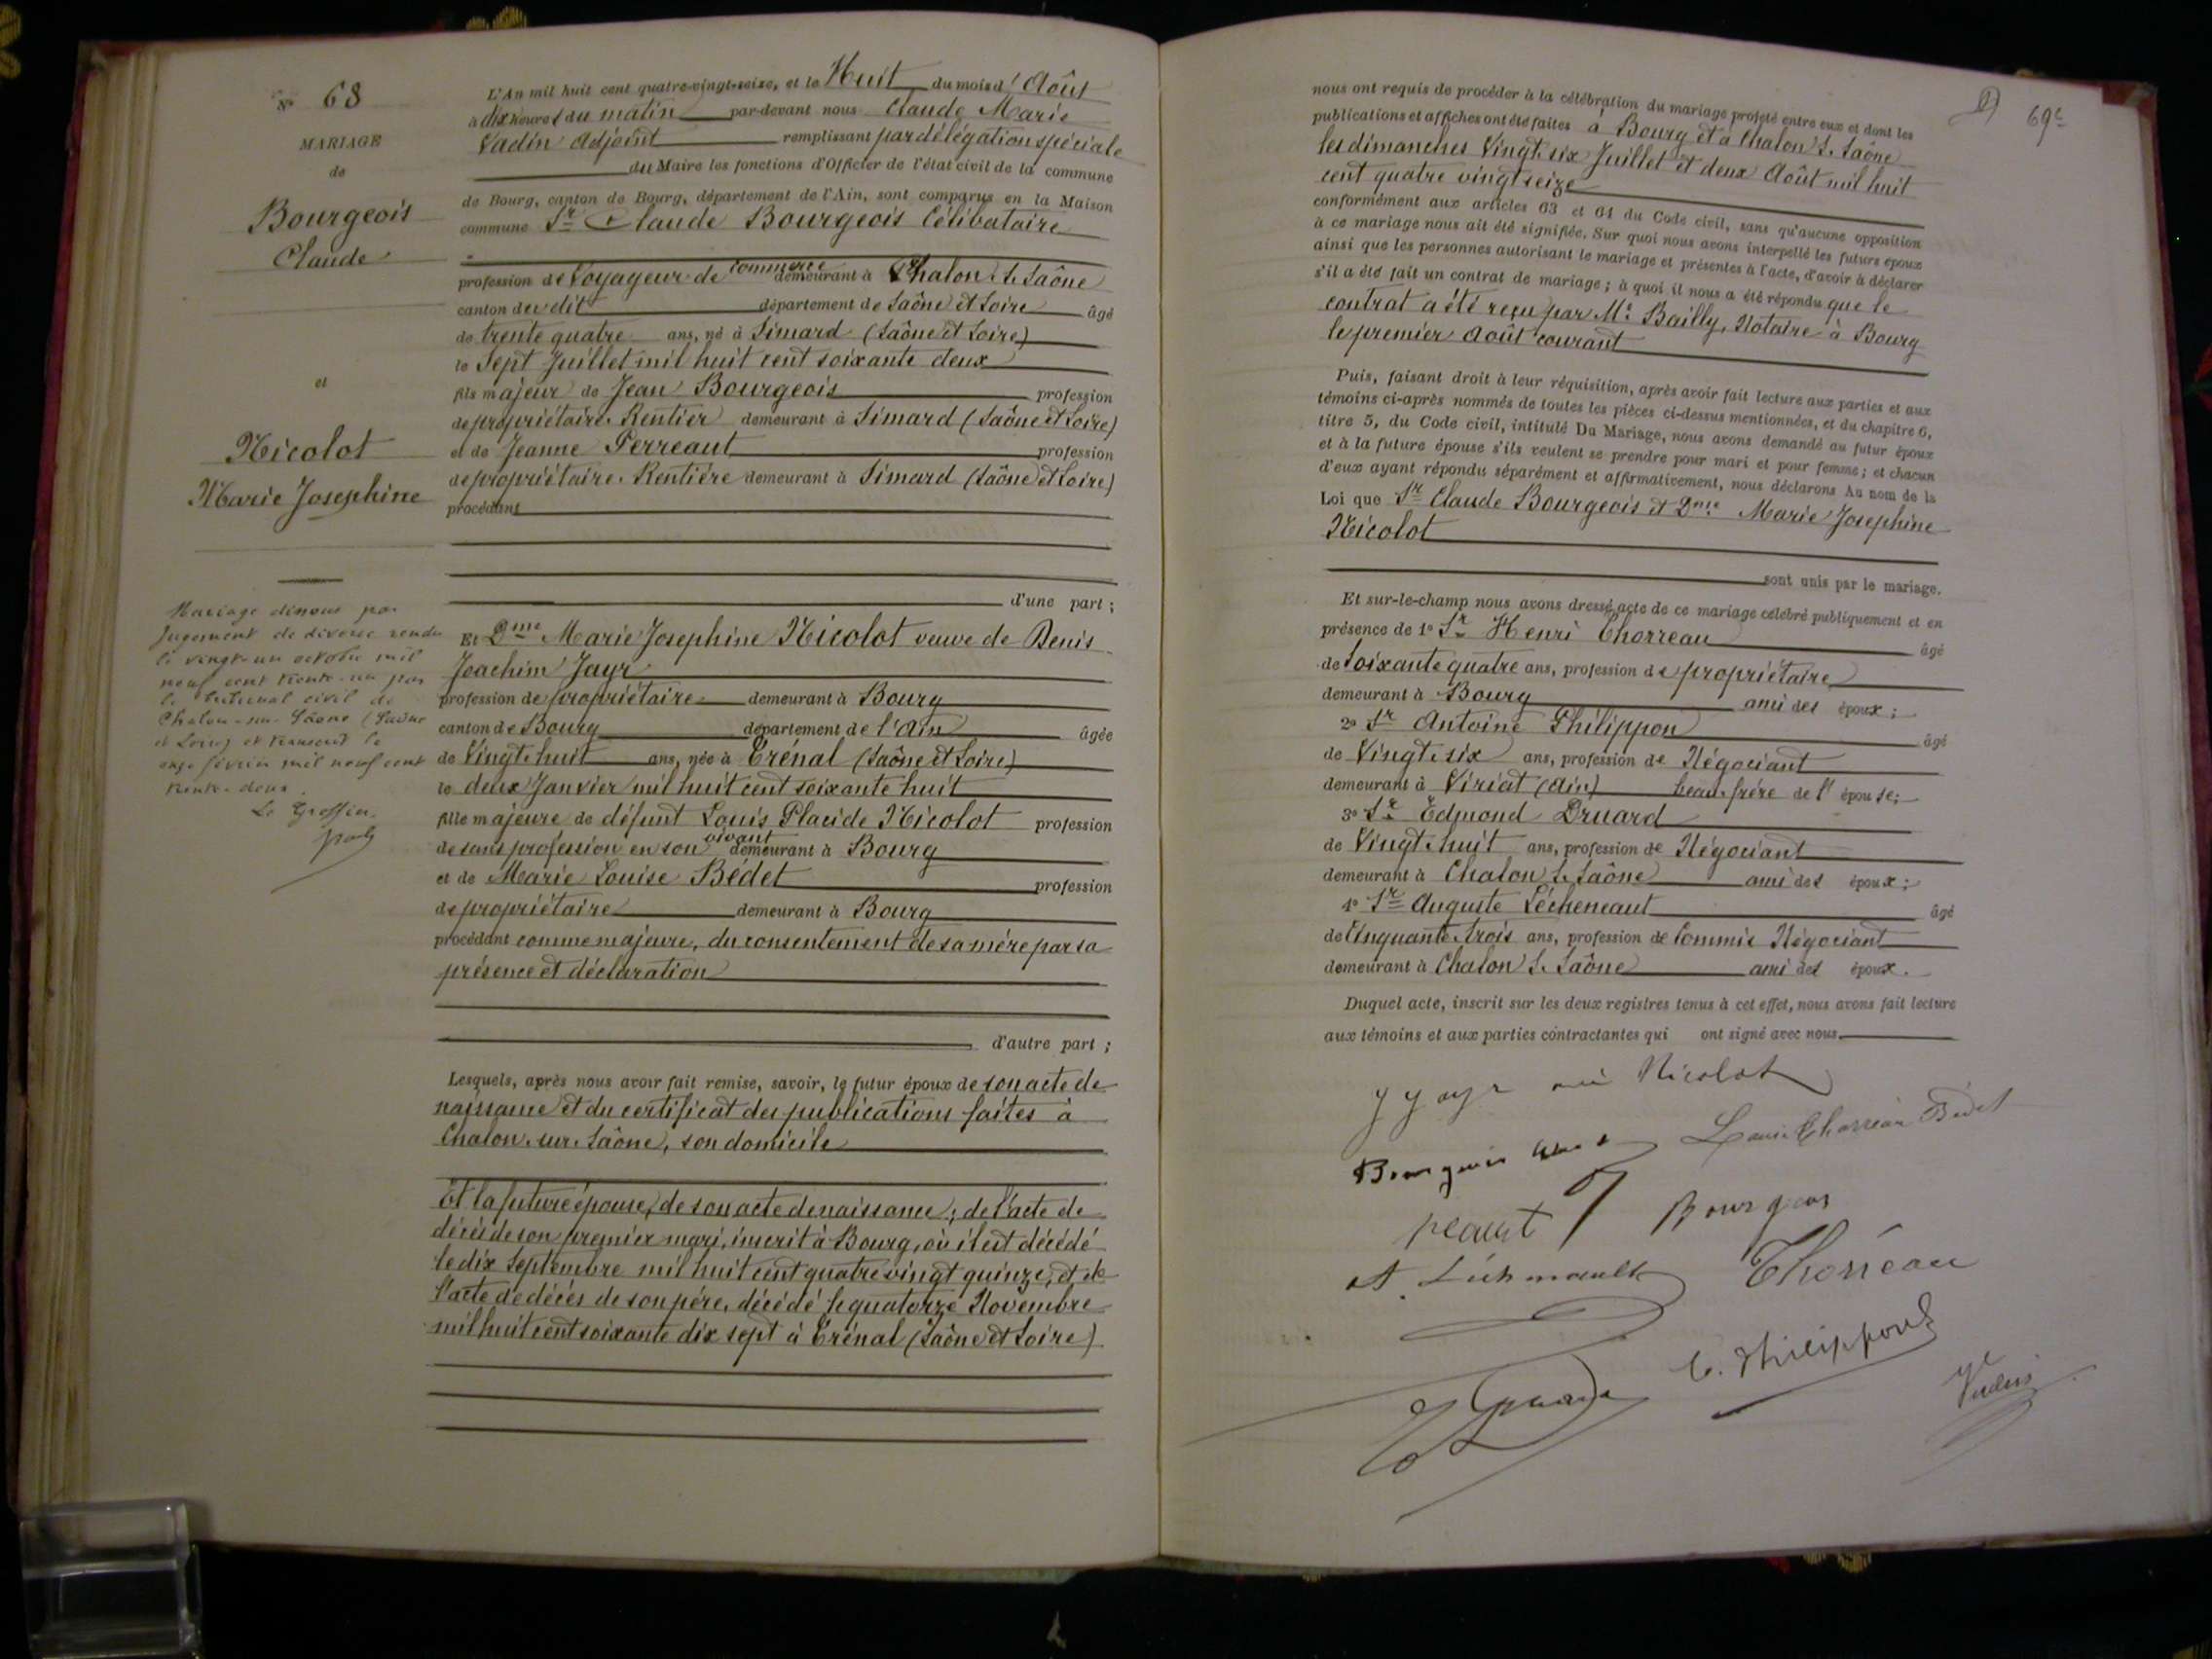 N° 68
MARIAGE
de
Bourgeois
Claude
et
Nicolot
Marie Josephine
Mariage dissous par
jugement de divorce rendu
le vingt-un octobre mil
neuf cent trente-un par
le tribunal civil de
Chalon-sur-Saône (Saône
et Loire) et transcrit le
onze février mil neuf cent
trente-deux.
Le Greffier,
L'An mil huit cent quatre-vingt-seize, et le Huit du mois d'Août
à dix heures du matin par-devant nous Claude Marie
Vadin Adjoint remplissant par délégation spéciale
du Maire les fonctions d'Officier de l'état civil de la commune
de Bourg, canton de Bourg, département de l'Ain, sont comparus en la Maison
commune Sr Claude Bourgeois Célibataire
profession de Voyageur de commerce demeurant à Chalon s. Saône
canton du dit département de Saône et Loire âgé
de trente quatre ans, né à Simard (Saône et Loire)
le Sept Juillet mil huit cent soixante deux
fils majeur de Jean Bourgeois profession
de propriétaire. Rentier demeurant à Simard (Saône et Loire)
et de Jeanne Perreaut profession
de propriétaire. Rentière demeurant à Simard (Saône et Loire)
procédant
d'une part ;
Et Dme Marie Josephine Nicolot veuve de Denis
Joachim Jayr
profession de propriétaire demeurant à Bourg
canton de Bourg département de l'Ain âgée
de Vingt-huit ans, née à Trénal (Saône et Loire)
le deux Janvier mil huit cent soixante huit
fille majeure de défunt Louis Placide Nicolot profession
de sans profession en son vivant demeurant à Bourg
et de Marie Louise Bédet profession
de propriétaire demeurant à Bourg
procédant comme majeure, du consentement de sa mère par sa
présence et déclaration
d'autre part ;
Lesquels, après nous avoir fait remise, savoir, le futur époux de son acte de
naissance et du certificat des publications faites à
Chalon-sur-Saône, son domicile
Et la future épouse, de son acte de naissance ; de l'acte de
décès de son premier mari, inscrit à Bourg, où il est décédé
le dix Septembre mil huit cent quatre vingt quinze, et de
l'acte de décès de son père, décédé le quatorze Novembre
mil huit cent soixante dix sept à Trénal (Saône et Loire)
69e
nous ont requis de procéder à la célébration du mariage projeté entre eux et dont les
publications et affiches ont été faites à Bourg et à Chalon s. Saône
les dimanches Vingt-six Juillet et deux Août mil huit
cent quatre vingt seize
conformément aux articles 63 et 64 du Code civil, sans qu'aucune opposition
à ce mariage nous ait été signifiée. Sur quoi nous avons interpellé les futurs époux
ainsi que les personnes autorisant le mariage et présentes à l'acte, d'avoir à déclarer
s'il a été fait un contrat de mariage ; à quoi il nous a été répondu que le
contrat a été reçu par Me Bailly, Notaire à Bourg
le premier Août courant
Puis, faisant droit à leur réquisition, après avoir fait lecture aux parties et aux
témoins ci-après nommés de toutes les pièces ci-dessus mentionnées, et du chapitre 6,
titre 5, du Code civil, intitulé Du Mariage, nous avons demandé au futur époux
et à la future épouse s'ils veulent se prendre pour mari et pour femme ; et chacun
d'eux ayant répondu séparément et affirmativement, nous déclarons Au nom de la
Loi que Sr Claude Bourgeois et Dme Marie Josephine
Nicolot
sont unis par le mariage.
Et sur-le-champ nous avons dressé acte de ce mariage célébré publiquement et en
présence de 1° Sr Henri Chorreau âgé
de Soixante quatre ans, profession de propriétaire
demeurant à Bourg ami des époux ;
2° Sr Antoine Philippon âgé
de Vingt-six ans, profession de Négociant
demeurant à Viriat (Ain) beau-frère de l'épouse ;
3° Sr Edmond Druard
de Vingt-huit ans, profession de Négociant
demeurant à Chalon s. Saône ami des époux ;
4° Sr Auguste Lécheneaut âgé
de Cinquante-trois ans, profession de Commis Négociant
demeurant à Chalon s. Saône ami des époux.
Duquel acte, inscrit sur les deux registres tenus à cet effet, nous avons fait lecture
aux témoins et aux parties contractantes qui ont signé avec nous.
née Nicolot
Bédet
Bourgeois
A.
C. Philippon
Vadin